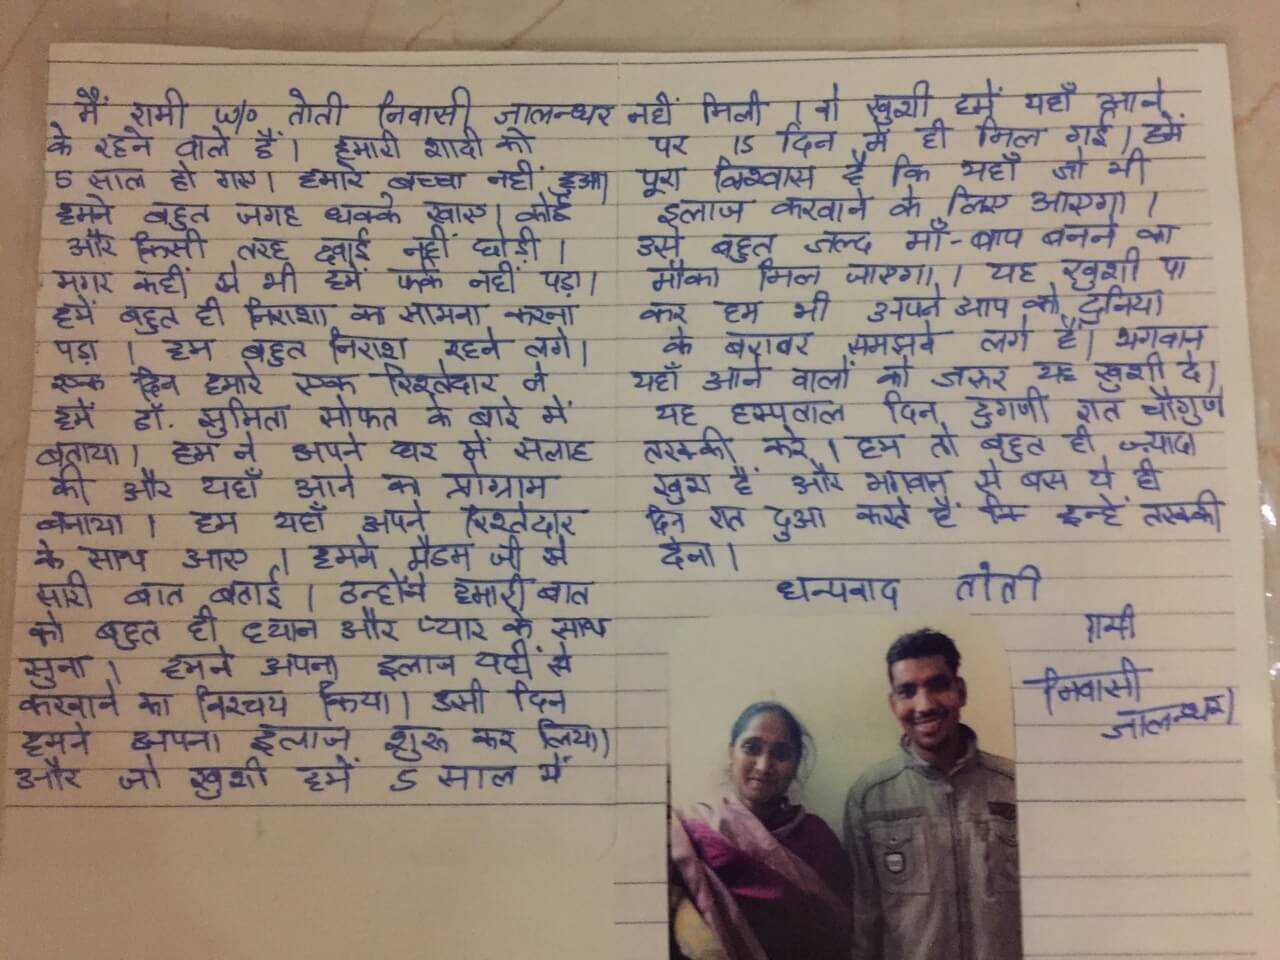 मैं रामी w/o तोती निवासी जालन्धर
के रहने वाले हैं। हमारी शादी को
5 साल हो गए। हमारे बच्चा नहीं हुआ।
हमने बहुत जगह धक्के खाए। कोई
और किसी तरह दवाई नहीं छोड़ी।
मगर कहीं से भी हमें फर्क नहीं पड़ा।
हमें बहुत ही निराशा का सामना करना
पड़ा। हम बहुत निराश रहने लगे।
एक दिन हमारे एक रिश्तेदार ने
हमें डॉ. सुमिता सोफत के बारे में
बताया। हम ने अपने घर में सलाह
की और यहाँ आने का प्रोग्राम
बनाया। हम यहाँ अपने रिश्तेदार
के साथ आए। हमने मैडम जी से
सारी बात बताई। उन्होंने हमारी बात
को बहुत ही ध्यान और प्यार के साथ
सुना। हमने अपना इलाज यहीं से
करवाने का निश्चय किया। उसी दिन
हमने अपना इलाज शुरू कर लिया।
और जो खुशी हमें 5 साल में
नहीं मिली। वो खुशी हमें यहाँ आने
पर 15 दिन में ही मिल गई। हमें
पूरा विश्वास है कि यहाँ जो भी
इलाज करवाने के लिए आएगा।
उसे बहुत जल्द माँ-बाप बनने का
मौका मिल जाएगा। यह खुशी पा
कर हम भी अपने आप को दुनिया
के बराबर समझने लगे हैं। भगवान
यहाँ आने वालों को जरूर यह खुशी दे।
यह हस्पताल दिन दुगणी रात चौगुणी
तरक्की करे। हम तो बहुत ही ज्यादा
खुश हैं और भगवान से बस ये ही
दिन रात दुआ करते हैं कि इन्हें तरक्की
देना।
धन्यवाद तोती
रामी
निवासी
जालन्धर